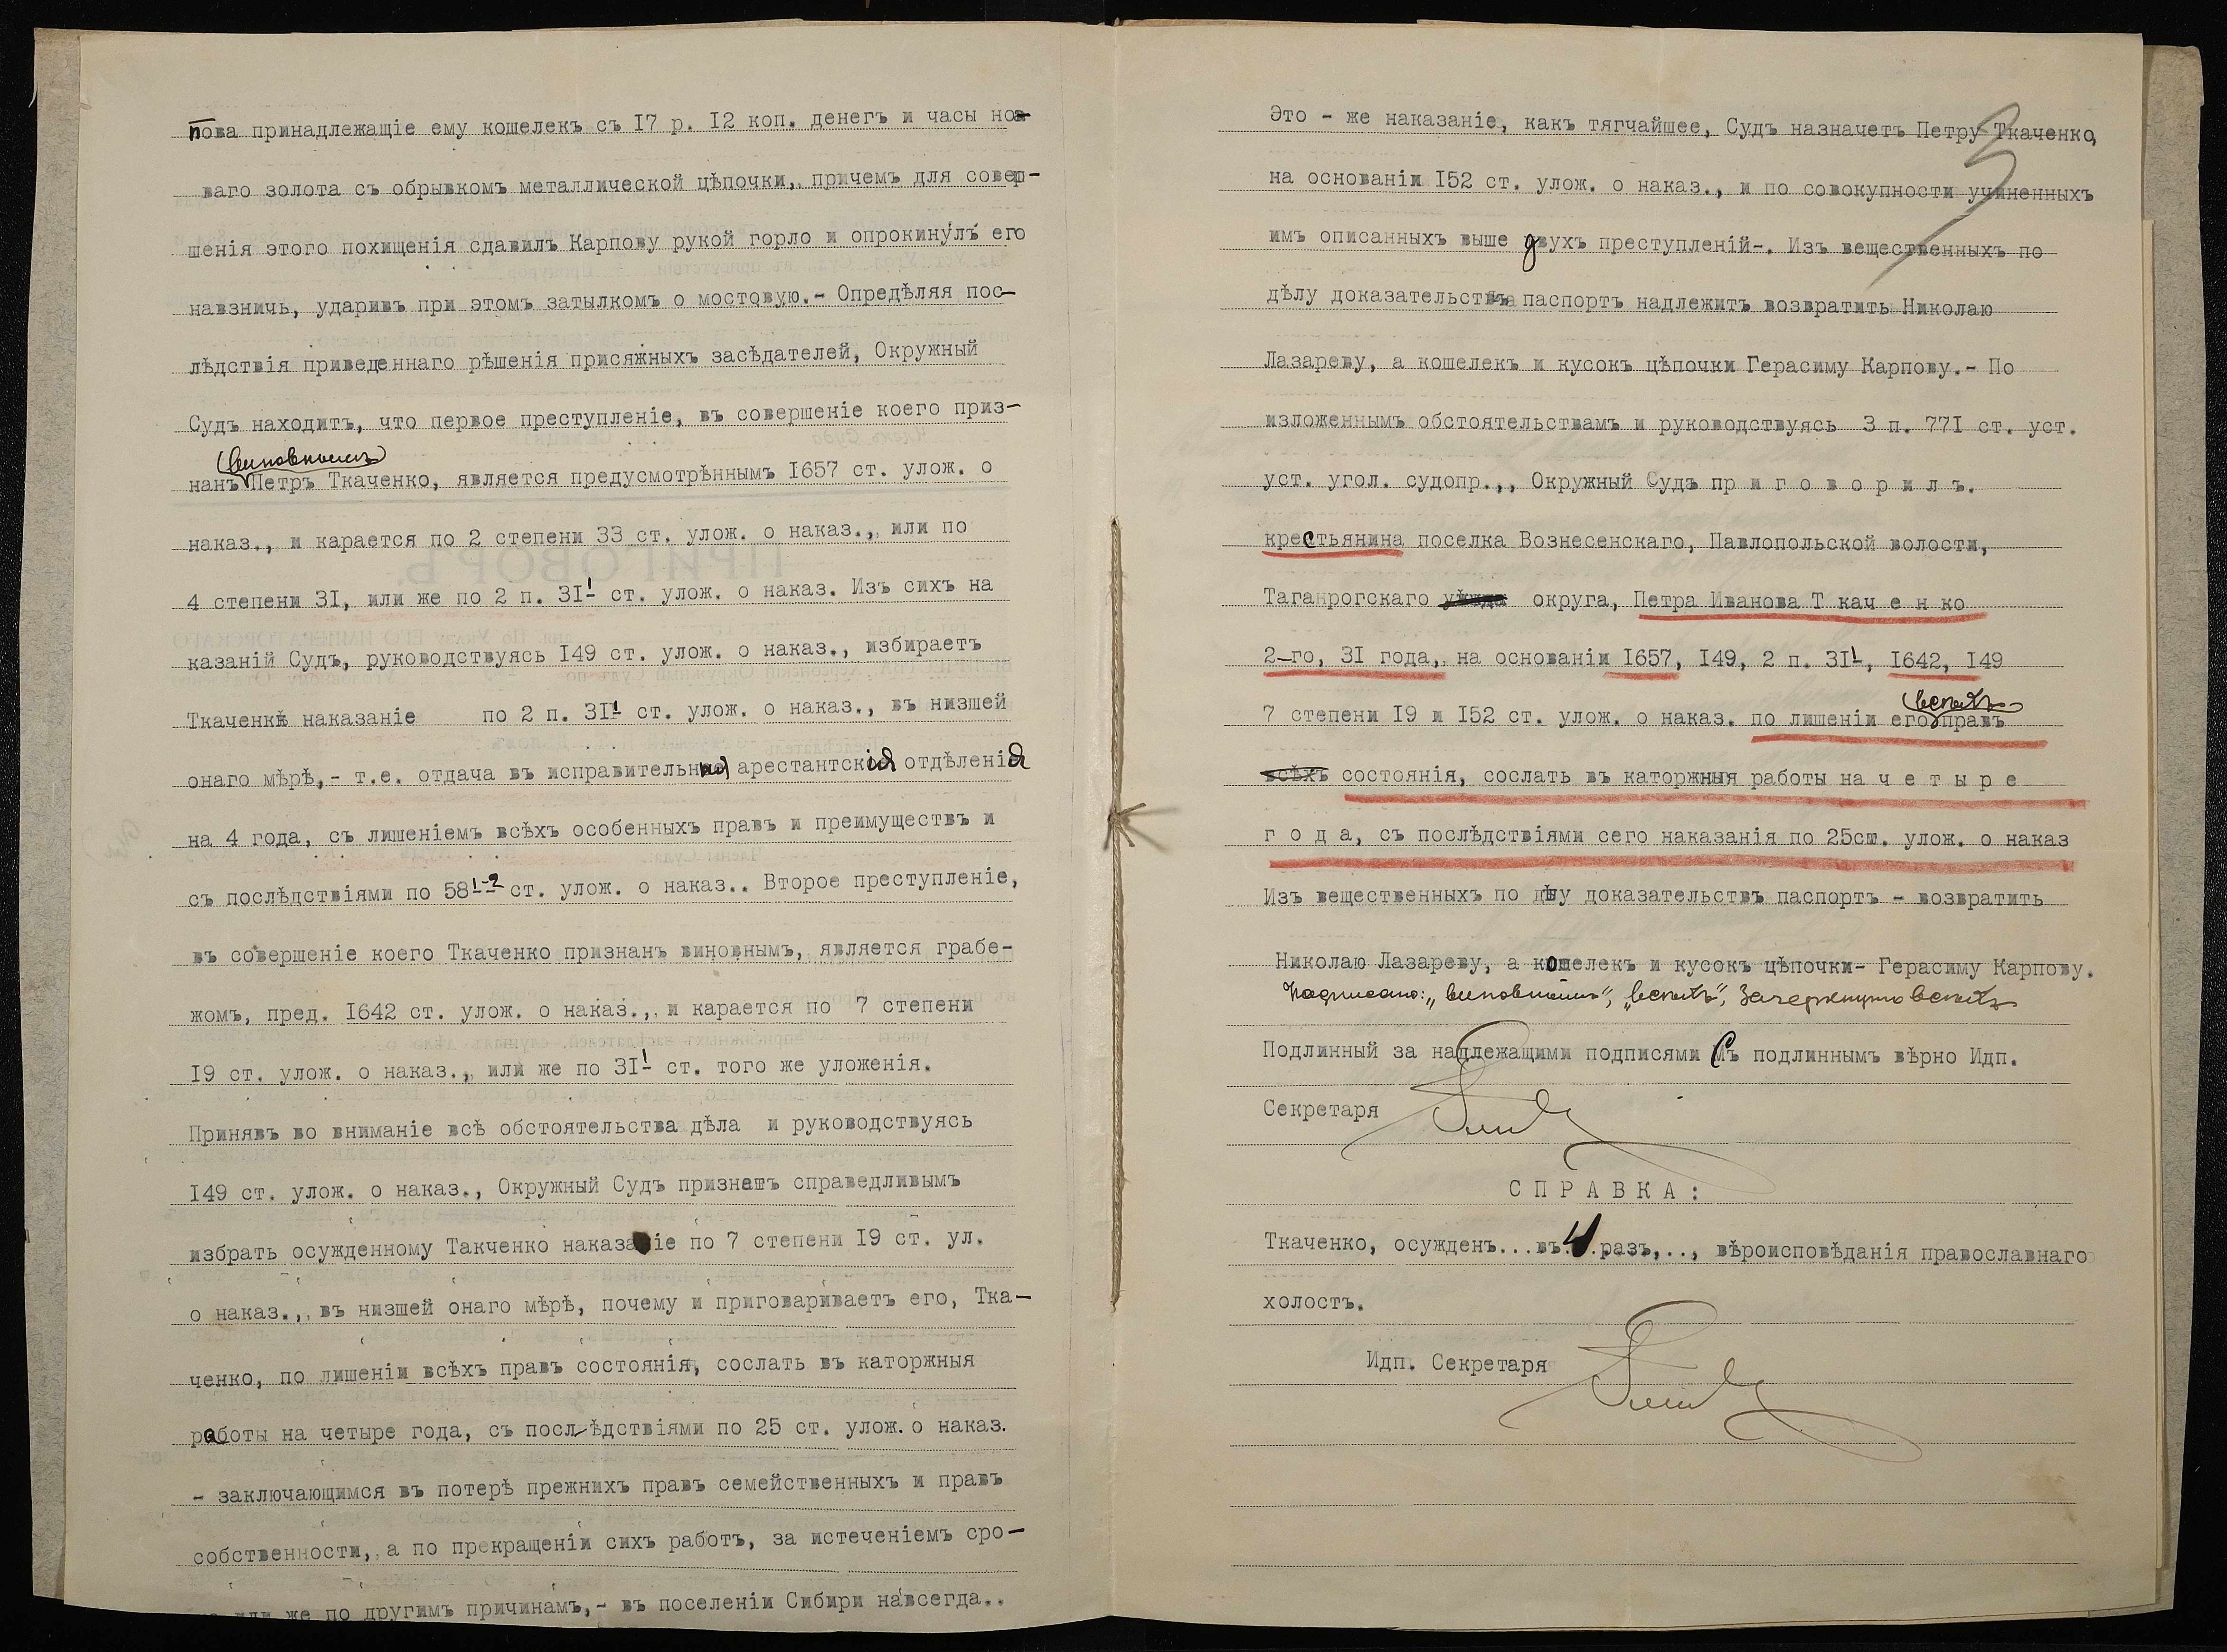 пова принадлежащіе ему кошелекъ съ I7 р. I2 коп. денегъ и часы но-
ваго золота съ обрывкомъ металлической цѣпочки,, причемъ для совер-
шенія этого похищенія сдавилъ Карпову рукой горло и опрокинулъ его
навзничь, ударивъ при этомъ затылкомъ о мостовую.- Опредѣляя пос-
лѣдствія приведеннаго рѣшенія присяжныхъ засѣдателей, Окружный
Судъ находитъ, что первое преступленіе, въ совершеніе коего приз-
виновнымъ
нанъ Петръ Ткаченко, является предусмотрѣннымъ I657 ст. улож. о
наказ., и карается по 2 степени 33 ст. улож. о наказ., или по
4 степени 3I, или же по 2 п. 3I¹ ст. улож. о наказ. Изъ сихъ на
казаній Судъ, руководствуясь I49 ст. улож. о наказ., избираетъ
Ткаченкѣ наказаніе по 2 п. 3I¹ ст. улож. о наказ., въ низшей
онаго мѣрѣ,- т.е. отдача въ исправительныя арестантскія отдѣленія
на 4 года, съ лишеніемъ всѣхъ особенныхъ правъ и преимуществъ и
съ послѣдствіями по 58¹⁻² ст. улож. о наказ.. Второе преступленіе,
въ совершеніе коего Ткаченко признанъ виновнымъ, является грабе-
жомъ, пред. I642 ст. улож. о наказ.,, и карается по 7 степени
I9 ст. улож. о наказ.,, или же по 3I¹ ст. того же уложенія.
Принявъ во вниманіе всѣ обстоятельства дѣла и руководствуясь
I49 ст. улож. о наказ., Окружный Судъ признаетъ справедливымъ
избрать осужденному Такченко наказаніе по 7 степени I9 ст. ул.
о наказ.,, въ низшей онаго мѣрѣ, почему и приговариваетъ его, Тка-
ченко, по лишеніи всѣхъ правъ состоянія, сослать въ каторжныя
работы на четыре года, съ послѣдствіями по 25 ст. улож. о наказ.
- заключающимся въ потерѣ прежнихъ правъ семейственныхъ и правъ
собственности,, а по прекращеніи сихъ работъ, за истеченіемъ сро-
или же по другимъ причинамъ,- въ поселеніи Сибири навсегда..
Это - же наказаніе, какъ тягчайшее, Судъ назначетъ Петру Ткаченко,
на основаніи I52 ст. улож. о наказ., и по совокупности учиненныхъ
имъ описанныхъ выше двухъ преступленій-. Изъ вещественныхъ по
дѣлу доказательствъ паспортъ надлежитъ возвратить Николаю
Лазареву, а кошелекъ и кусокъ цѣпочки Герасиму Карпову.- По
изложеннымъ обстоятельствамъ и руководствуясь 3 п. 77I ст. уст.
уст. угол. судопр.,, Окружный Судъ пр и г о в о р и л ъ.
крестьянина поселка Вознесенскаго, Павлопольской волости,
Таганрогскаго уѣзда округа, Петра Иванова Т кач е н ко
2-го, 3I года,, на основаніи I657, I49, 2 п. 3I¹, I642, I49
всѣхъ
7 степени I9 и I52 ст. улож. о наказ. по лишеніи его правъ
всѣхъ состоянія, сослать въ каторжныя работы на ч е т ы р е
г о д а, съ послѣдствіями сего наказанія по 25ст. улож. о наказ
Изъ вещественныхъ по дѣлу доказательствъ паспортъ - возвратить
Николаю Лазареву, а кошелекъ и кусокъ цѣпочки- Герасиму Карпову.
Надписано: „виновнымъ", „всѣхъ", Зачеркнуто всѣхъ
Подлинный за надлежащими подписями Съ подлиннымъ вѣрно Идп.
Секретаря
С П Р А В К А :
Ткаченко, осужденъ...въ.4.разъ,.., вѣроисповѣданія православнаго
холостъ.
Идп. Секретаря